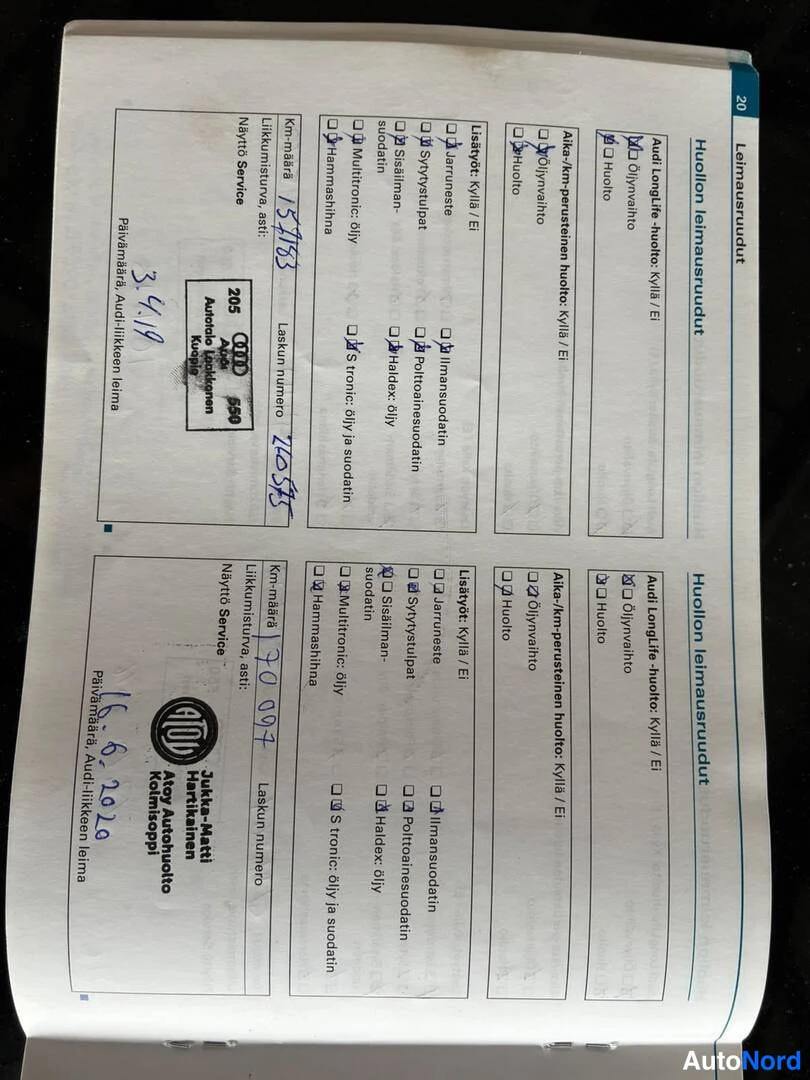 20
Leimausruudut
Huollon leimausruudut
Audi LongLife -huolto: Kyllä / Ei
Öljynvaihto
Huolto
Aika-/km-perusteinen huolto: Kyllä / Ei
Öljynvaihto
Huolto
Lisätyöt: Kyllä / Ei
Jarruneste
Ilmansuodatin
Sytytystulpat
Polttoainesuodatin
Sisäilman-
suodatin
Haldex: öljy
Multitronic: öljy
S tronic: öljy ja suodatin
Hammashihna
Km-määrä 157183 Laskun numero 260575
Liikkumisturva, asti:
Näyttö Service
205 Audi 550
Autotalo Laakkonen
Kuopio
3.4.19
Päivämäärä, Audi-liikkeen leima
Huollon leimausruudut
Audi LongLife -huolto: Kyllä / Ei
Öljynvaihto
Huolto
Aika-/km-perusteinen huolto: Kyllä / Ei
Öljynvaihto
Huolto
Lisätyöt: Kyllä / Ei
Jarruneste
Ilmansuodatin
Sytytystulpat
Polttoainesuodatin
Sisäilman-
suodatin
Haldex: öljy
Multitronic: öljy
S tronic: öljy ja suodatin
Hammashihna
Km-määrä 170 097 Laskun numero
Liikkumisturva, asti:
Näyttö Service
ATOY
Jukka-Matti
Hartikainen
Atoy Autohuolto
Kolmisoppi
16.6.2020
Päivämäärä, Audi-liikkeen leima
AutoNord